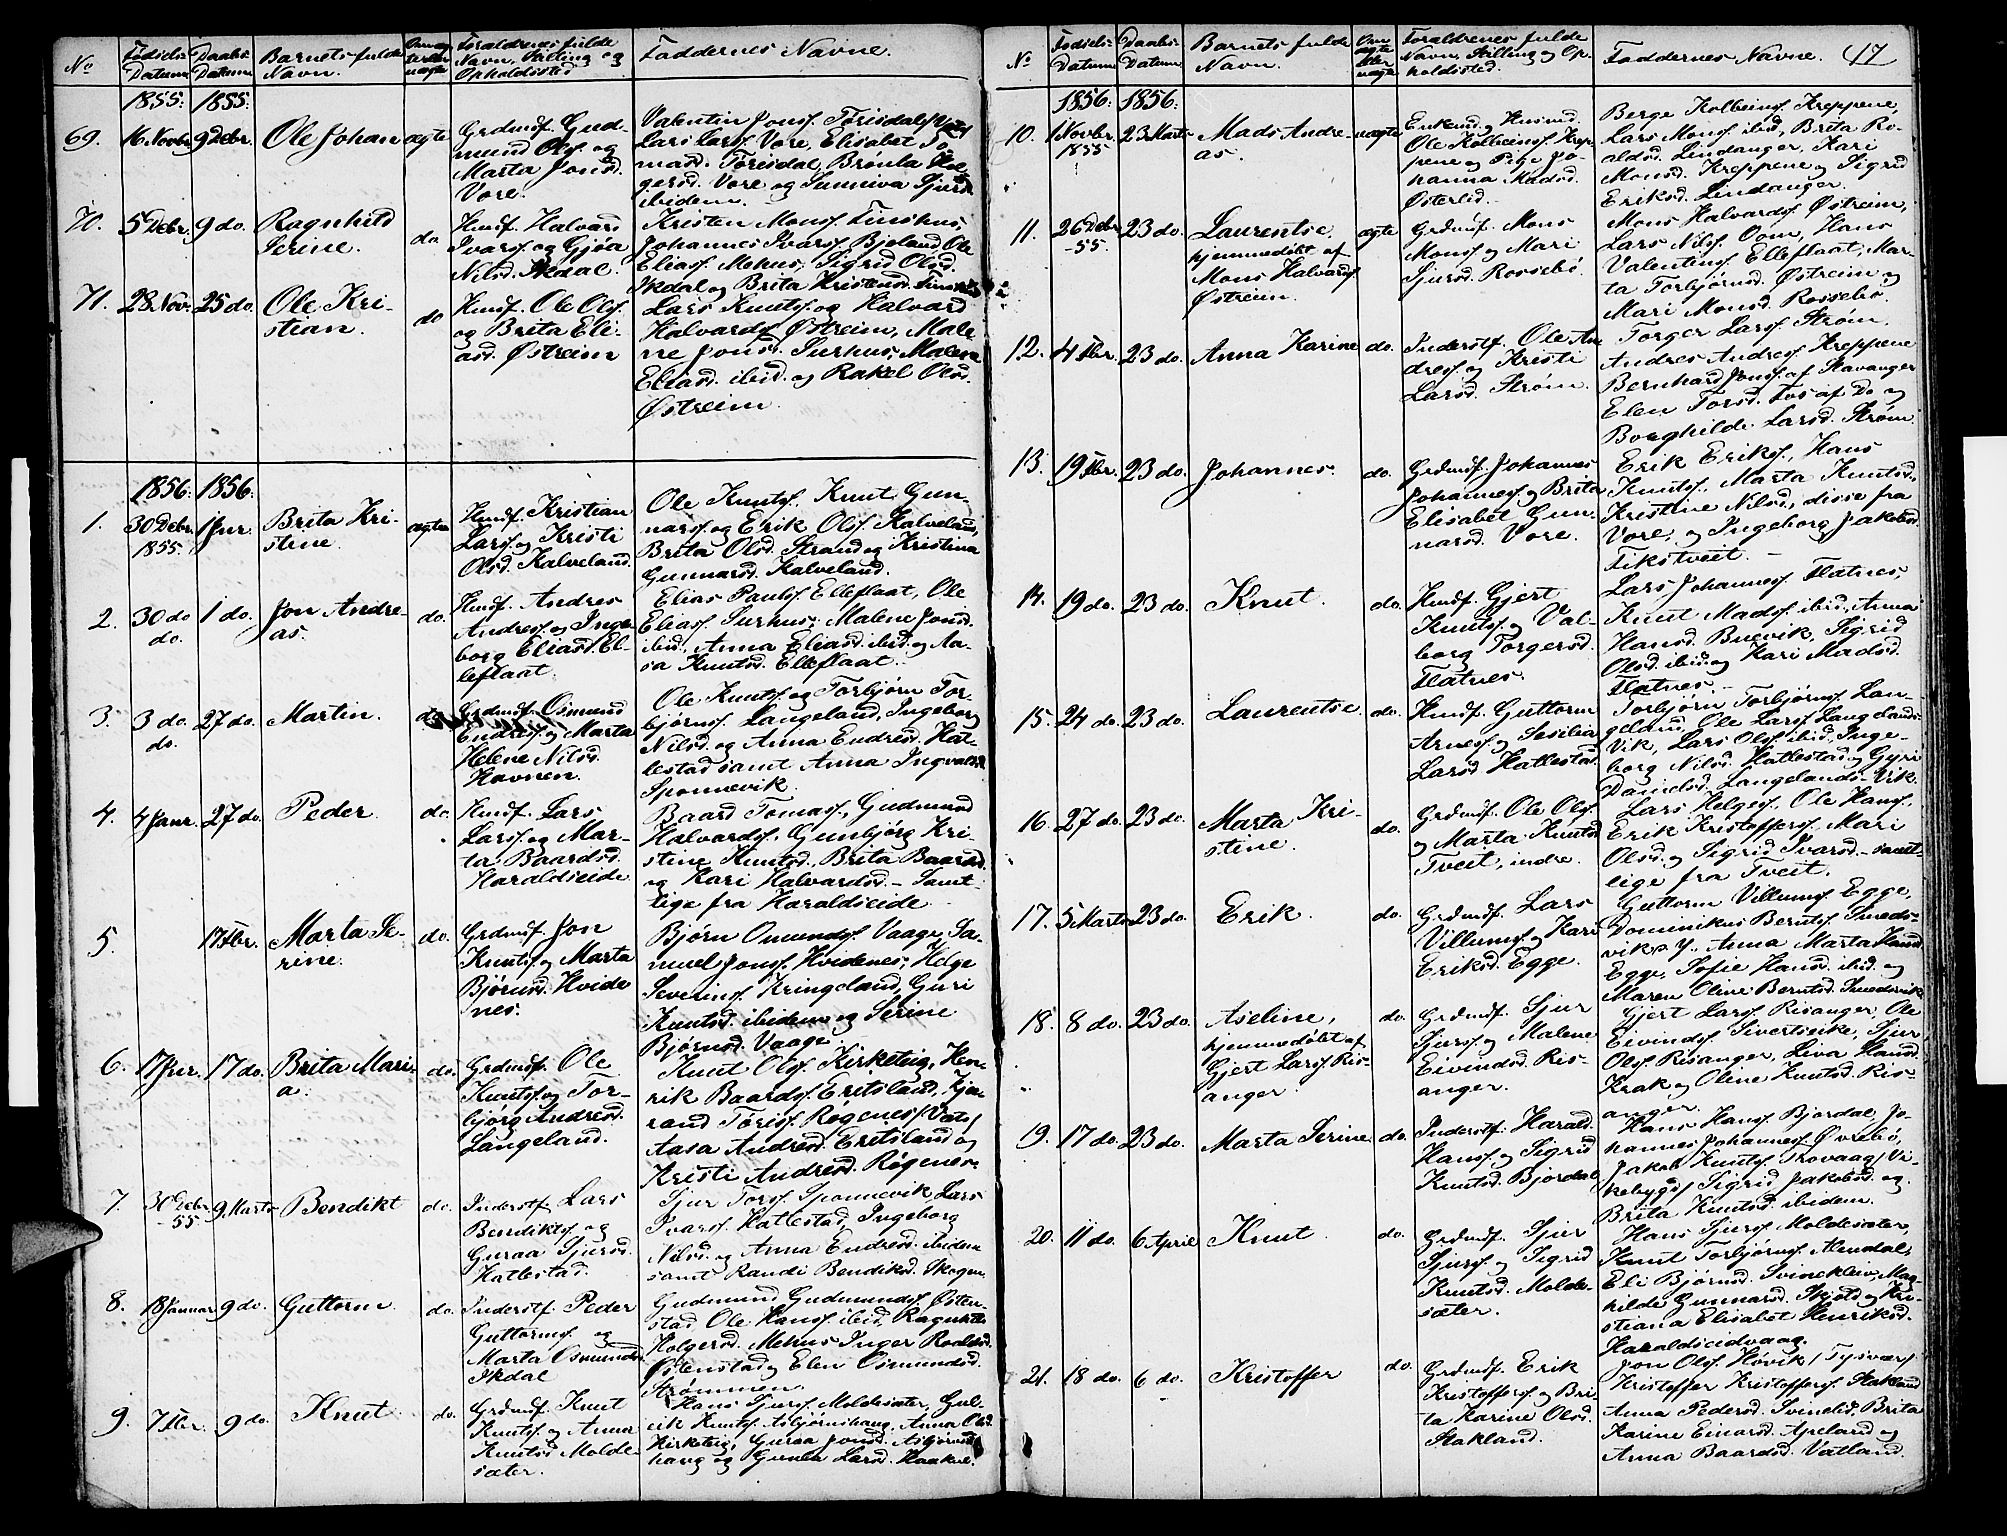 No
Fødsels-
Datum
Daabs-
Datum
Barnets fulde
Navn.
Forældrenes fulde
Navn, Stilling og
Opholdssted
Faddernes Navne.
1855: 1855:
69. 16 Novbr. 9 Debr. Ole Johan ægte
Grdmd. Gud-
mund Ols. og
Marta Jonsd.
Vore.
Valentin Jons. Törisdal
Lars Lars. Vore, Elisabet To-
masd. Törisdal, Brönla Hol-
gersd. Vore og Sunniva Sjursd.
ibidem.
70. 5 Debr. 9 do. Ragnhild
Serine. do
Husmd. Halvard
Ivars. og Gjöa
Nilsd. Ikdal.
Kristen Mons. Tinshus,
Johannes Ivars. Bjeland, Ole
Elias. Mehus, Sigrid Olsd.
Ikdal og Brita Kristensd. Tinshus
71. 28 Novr. 25 do. Ole Kri-
stian. do
Husmd. Ole Ols.
og Brita Eli-
asd. Østreim
Lars Knuts. og Halvard
Halvards. Østreim, Male-
ne Jonsd. Surhus, Malene
Eliasd. ibid. og Rakel Olsd.
Østreim.
1856: 1856:
1. 30 Debr.
1855. 1 Jnr. Brita Kri-
stine. ægte
Husmd. Kristian
Lars. og Kristi
Olsd. Kalveland.
Ole Knuts. Knut Gun-
nars. og Erik Ols. Kalveland,
Brita Olsd. Strand og Kristina
Gunnarsd. Kalveland.
2. 30 do
do. 1 do. Jon Andre-
as. do.
Husmd. Andres
Andres. og Inge-
borg Eliasd. El-
leflaat.
Elias Pauls. Elleflaat, Ole
Elias. Surhus, Malene Jonsd.
ibid., Anna Eliasd. ibid. og Aa-
sa Knutsd. Elleflaat.
3. 3 do
do. 27 do. Martin. do
Grdmd. Osmund
Endres. og Marta
Helene Nilsd.
Havnen.
Ole Knuts. og Torbjörn Tor-
björns. Langeland, Ingeborg
Nilsd. og Anna Endresd. Hat-
lestad samt Anna Ingvaldsd.
Sponnevik.
4. 4 Janr. 27 do. Peder do.
Husmd. Lars
Lars. og Mar-
ta Baardsd.
Haraldseide
Baard Tomas. Gudmund
Halvards. Gunbjörg Kri-
stine Knutsd. Brita Baardsd.
og Kari Halvardsd. - Samt-
lige fra Haraldseide
5. 17 Fbr. Marta Se-
rine. do.
Grdmd. Jon
Knuts. og Marta
Björnsd. Hvide-
nes.
Björn Omunds. Vaage, Sa-
muel Jons. Hvidenes, Helge
Severins. Kringeland, Guri
Knutsd. ibidem og Serine
Björnsd. Vaage.
6. 17 do. Brita Mari-
a. do.
Grdmd. Ole
Knuts. og Tor-
björg Andresd.
Langeland.
Knut Ols. Kirketeig, Hen-
rik Baards. Eritsland, Kjøn-
rand Töris. Rögenes/Vats/
Aasa Andresd. Eritsland og
Kristi Andresd. Rögenes.
7. 30 Debr.
-55 9 Marts Bendikt do.
Inderstf. Lars
Bendikts. og
Guraa Sjursd.
Hatlestad.
Sjur Tors. Sponnevik, Lars
Ivars. Hatlestad, Ingeborg
Nilsd. og Anna Endresd. ibidem
samt Randi Bendiksd. Skogen.
8. 18 Januar 9 do. Guttorm. do.
Inderstf. Peder
Guttorms. og
Marta Osmundsd.
Ikdal
Gudmund Gudmunds. Østen-
stad, Ole Hans. ibid. Ragnhild
Holgersd. Mehus, Inger
Østenstad og Elen Osmundsd.
Strømmen.
9. 7 Fbr. 9 do. Knut do.
Grdmd. Knut
Knuts. og Anna
Knutsd. Molde-
sæter.
Hans Sjurs. Moldesæter, Gul-
eik Knuts. Asbjörnshaug, Anna Olsd.
Kirketeig, Guraa Jonsd. Asbjörns-
haug og Gunla Larsd.
No
Fødsels-
Datum
Daabs-
Datum.
Barnets fulde
Navn.
Forældrenes fulde
Navn, Stilling og Op-
holdssted.
Faddernes Navne. 17
1856 1856:
10. 1 Novbr
1855 23 Marts Mads Andre-
as. uægte
Enkemd. og Husmd.
Ole Kolbeins. Krep-
pene og Pige Jo-
hanna Madsd.
Østerlid.
Berge Kolbeins. Kreppene,
Lars Mons. ibid, Brita Ro-
aldsd. Lindanger, Kari
Monsd. Kreppene og Sigrid
Eriksd. Lindanger.
11. 26 Debr
-55 23 do. Laurentse,
hjemmedöbt af
Mons Halvards.
Østreim. ægte
Grdmd. Mons
Mons. og Mari
Sjursd. Rossebö.
Mons Halvards. Østreim,
Lars Nils. Oom, Hans
Valentins. Elleflaat, Mar-
ta Torbjörnsd. Østreim og
Mari Monsd. Rossebö.
12. 4 Fbr. 23 do. Anna Karine do.
Inderstf. Ole An-
dres. og Kristi
Larsd. Ström.
Torger Lars. Ström.
Andres Andres. Kreppene
Bernhard Jons. af Stavanger
Elen Torsd. Fos af Do og
Borghilde Larsd. Ström.
13. 19 Fbr. 23 do. Johannes. do.
Grdmd. Johannes
Johannes. og Brita
Elisabet Gun-
narsd. Vore.
Erik Eriks., Hans
Knuts. Marta Knutsd.,
Kristine Nilsd., disse fra
Vore, og Ingeborg Jakobsd.
Fikstveit.
14. 19 do. 23 do. Knut. do.
Husmd. Gjert
Knuts. og Val-
borg Torgersd.
Flatnes.
Lars Johannes. Flatnes,
Knut Mads. ibid, Anna
Hansd. Buevik, Sigrid
Olsd. ibid. og Kari Madsd.
Flatnes.
15. 24 do. 23 do. Laurentse do.
Husmd. Guttorm
Arnes. og Sesilia
Larsd. Hatlestad.
Torbjörn Torbjörns. Lan-
geland, Ole Lars. Langelands-
Vik, Lars Ols. ibid, Inge-
borg Nilsd. Hatlestad og Gyri
Danielsd. Langelands-Vik.
16. 27 do. 23 do. Marta Kri-
stine. do.
Grdmd. Ole Ols.
og Marta Knutsd.
Tveit, indre.
Lars Helges., Ole Hans.,
Erik Kristoffers., Mari
Olsd. og Sigrid Ivarsd. - samt-
lige fra Tveit.
17. 5 Marts 23 do. Erik. do.
Grdmd. Lars
Villums. og Kari
Eriksd. Egge.
Guttorm Villums. Egge,
Dominikus Bernts. Smeds-
vik p. Y., Anna Marta Hansd.
Egge, Sofie Hansd. ibid. og
Maren Oline Berntsd. Smedsvik
18. 8 do. 23 do. Aseline,
hjemmedöbt af
Gjert Lars. Ris-
anger. do.
Grdmd. Sjur
Sjurs. og Malene
Eivindsd. Ris-
anger.
Gjert Lars. Risanger, Ole
Eivinds. Sivertseike, Sjur
Ols. Risanger, Liva Hansd.
Krak og Oline Knutsd. Ris-
anger.
19. 17 do. 23 do. Marta Serine do.
Inderstf. Harald
Hans. og Sigrid
Knutsd. Bjordal.
Hans Hans. Bjordal, Jo-
hannes Johannes. Øvrebö,
Jakob Knuts. Skovaag/Vi-
kebygd/ Sigrid Jakobsd. og
Brita Knutsd. ibidem.
20. 11 do. 6 April Knut do.
Grdmd. Sjur
Sjurs. og Sigrid
Knutsd. Molde-
sæter.
Hans Sjurs. Moldesæter,
Knut Torbjörns. Alendal,
Eli Björnsd. Svinekleiv, Mag-
hilde Gunnarsd. Skjold og Kri-
stiana Elisabet Henriksd.
Haraldseidvaag.
21. 18 do. 6 do. Kristoffer do.
Grdmd. Erik
Kristoffers. og Bri-
ta Karine Olsd.
Stakland.
Jon Ols. Hövik/Tysvær/
Kristoffer Kristoffers. Stakland
Anna Pedersd. Svinelid, Brita
Karine Einarsd. Apeland og
Anna Baardsd. Vatland.